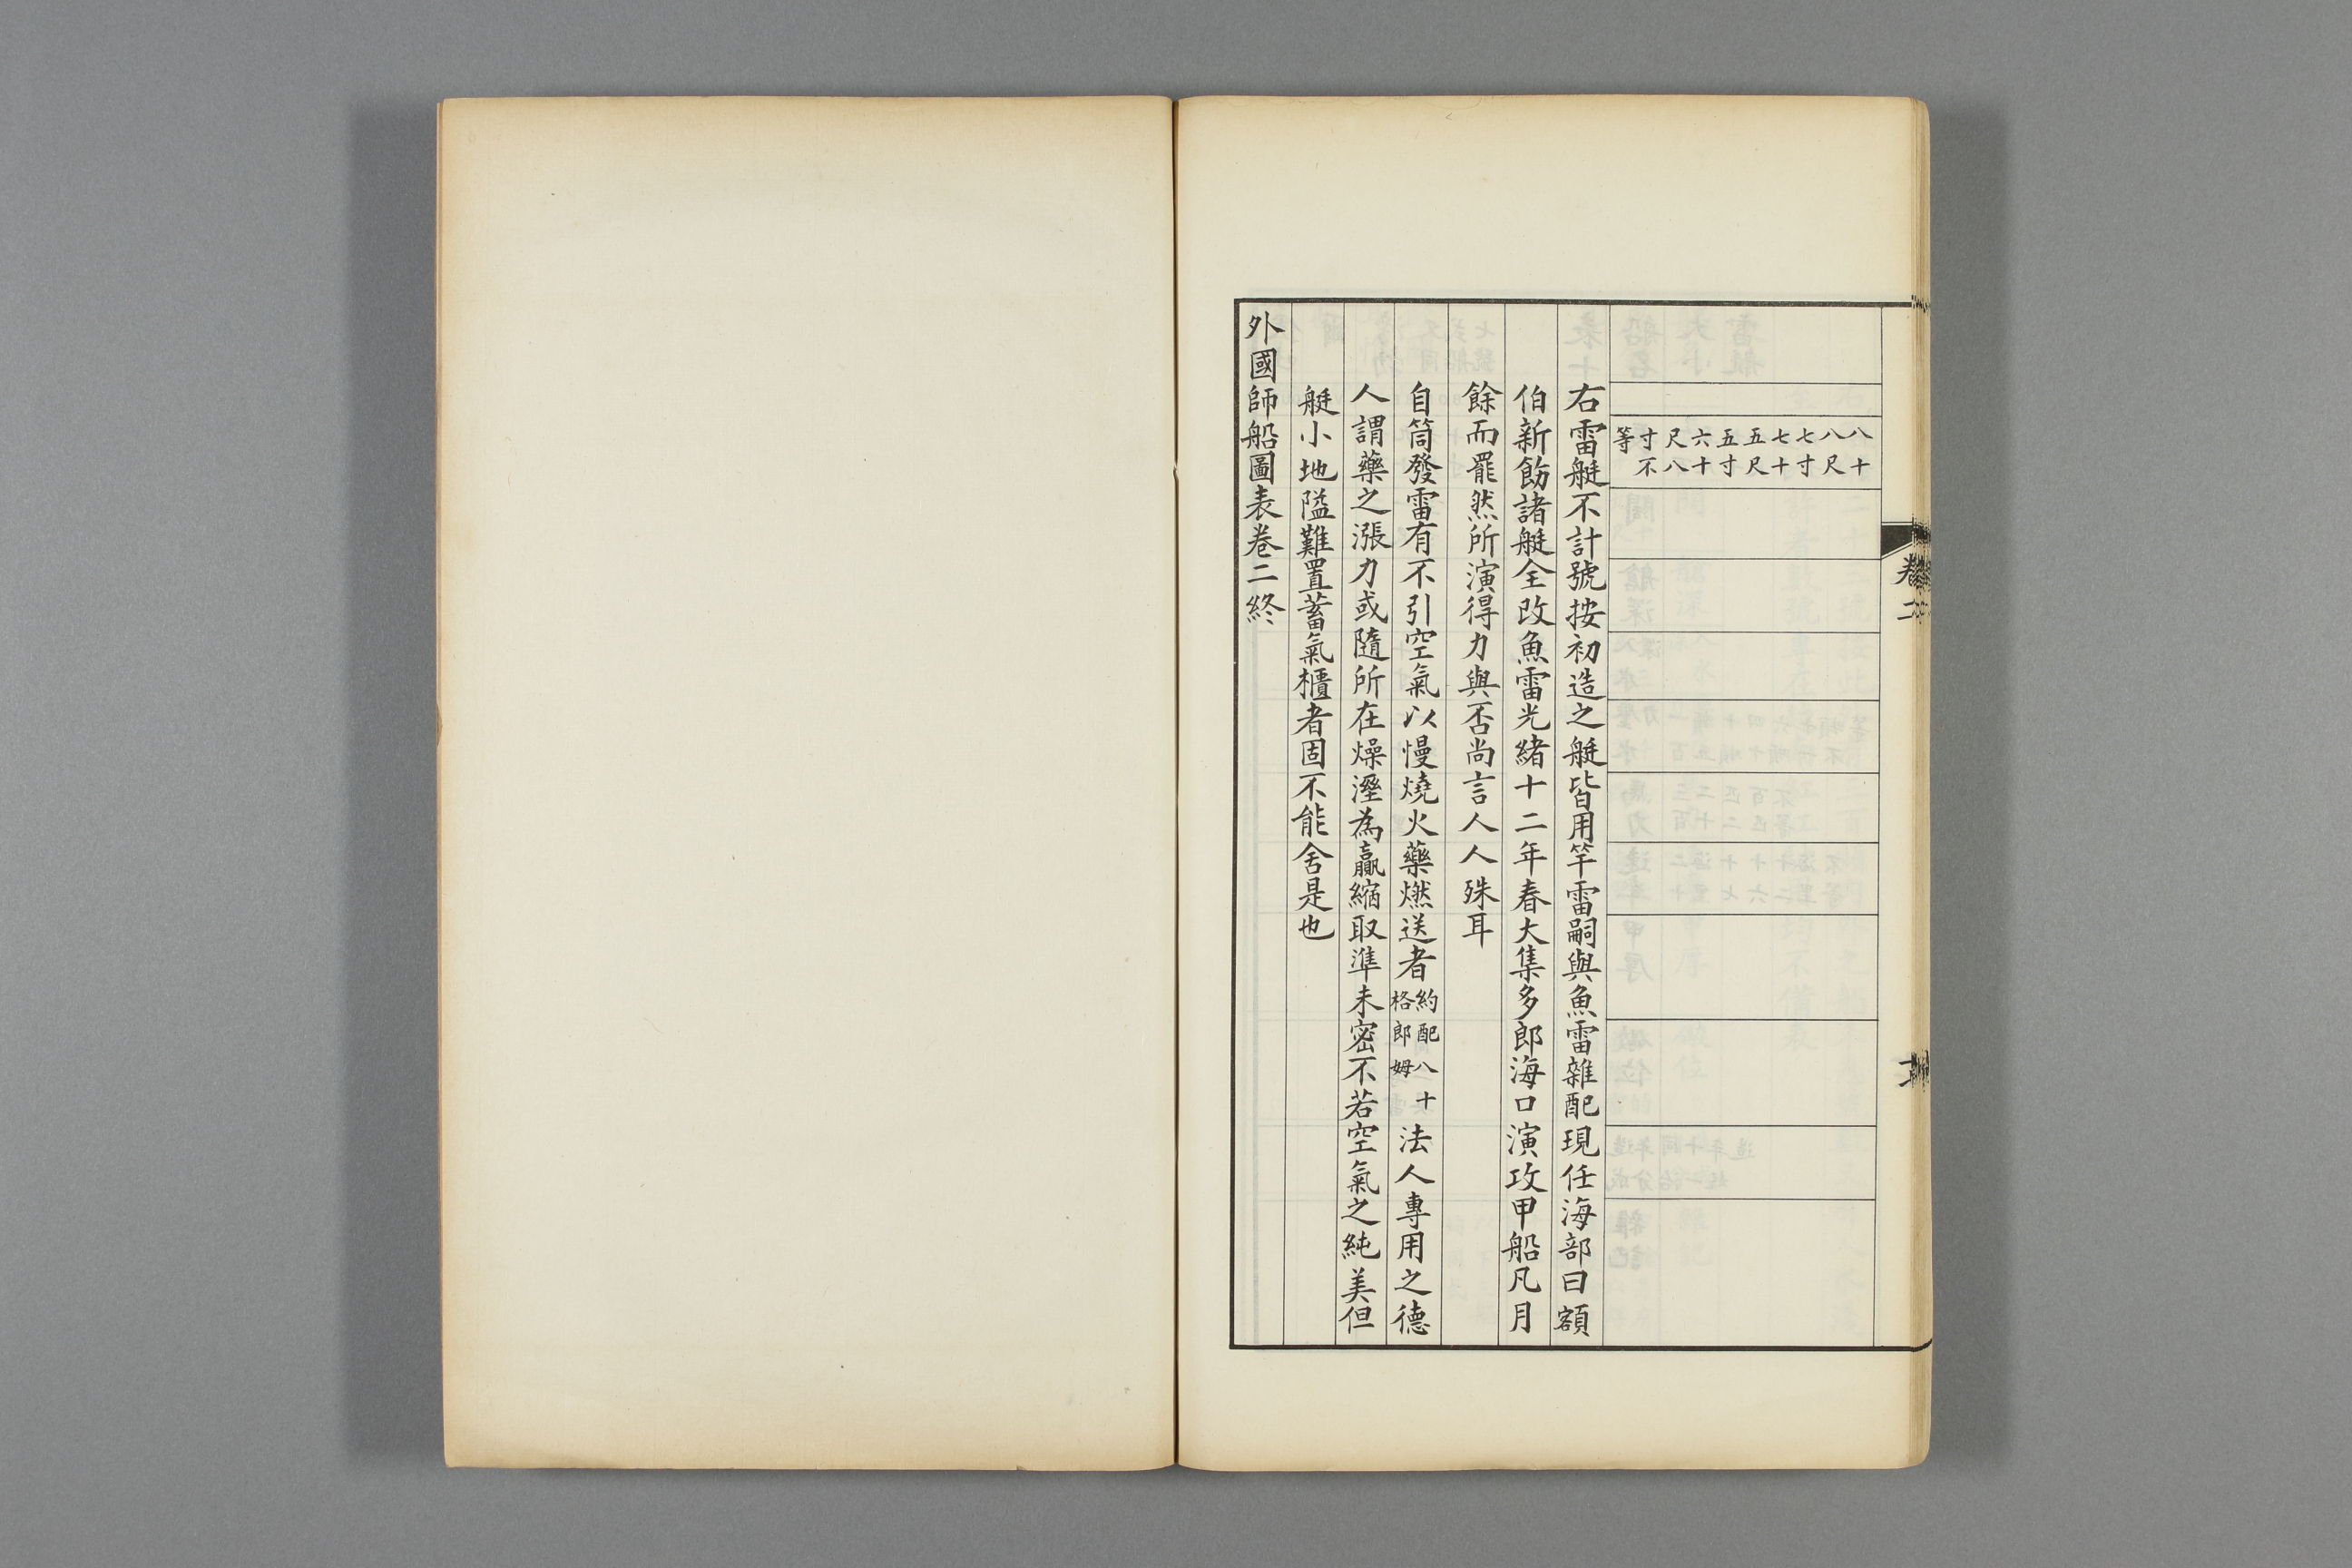 卷二
八十
八尺
七寸
七十
五尺
五寸
六十
尺八
寸不
等
右雷艇不計號按初造之艇皆用竿雷嗣與魚雷雜配現任海部曰額
伯新飭諸艇全改魚雷光緒十二年春大集多郎海口演攻甲船凡月
餘而罷然所演得力與否尚言人人殊耳
自筒發雷有不引空氣以慢燒火藥燃送者約配八十格郎姆法人專用之德
人謂藥之漲力或隨所在燥溼為贏縮取準未密不若空氣之純美但
艇小地隘難置蓄氣櫃者固不能舍是也
外國師船圖表卷二終